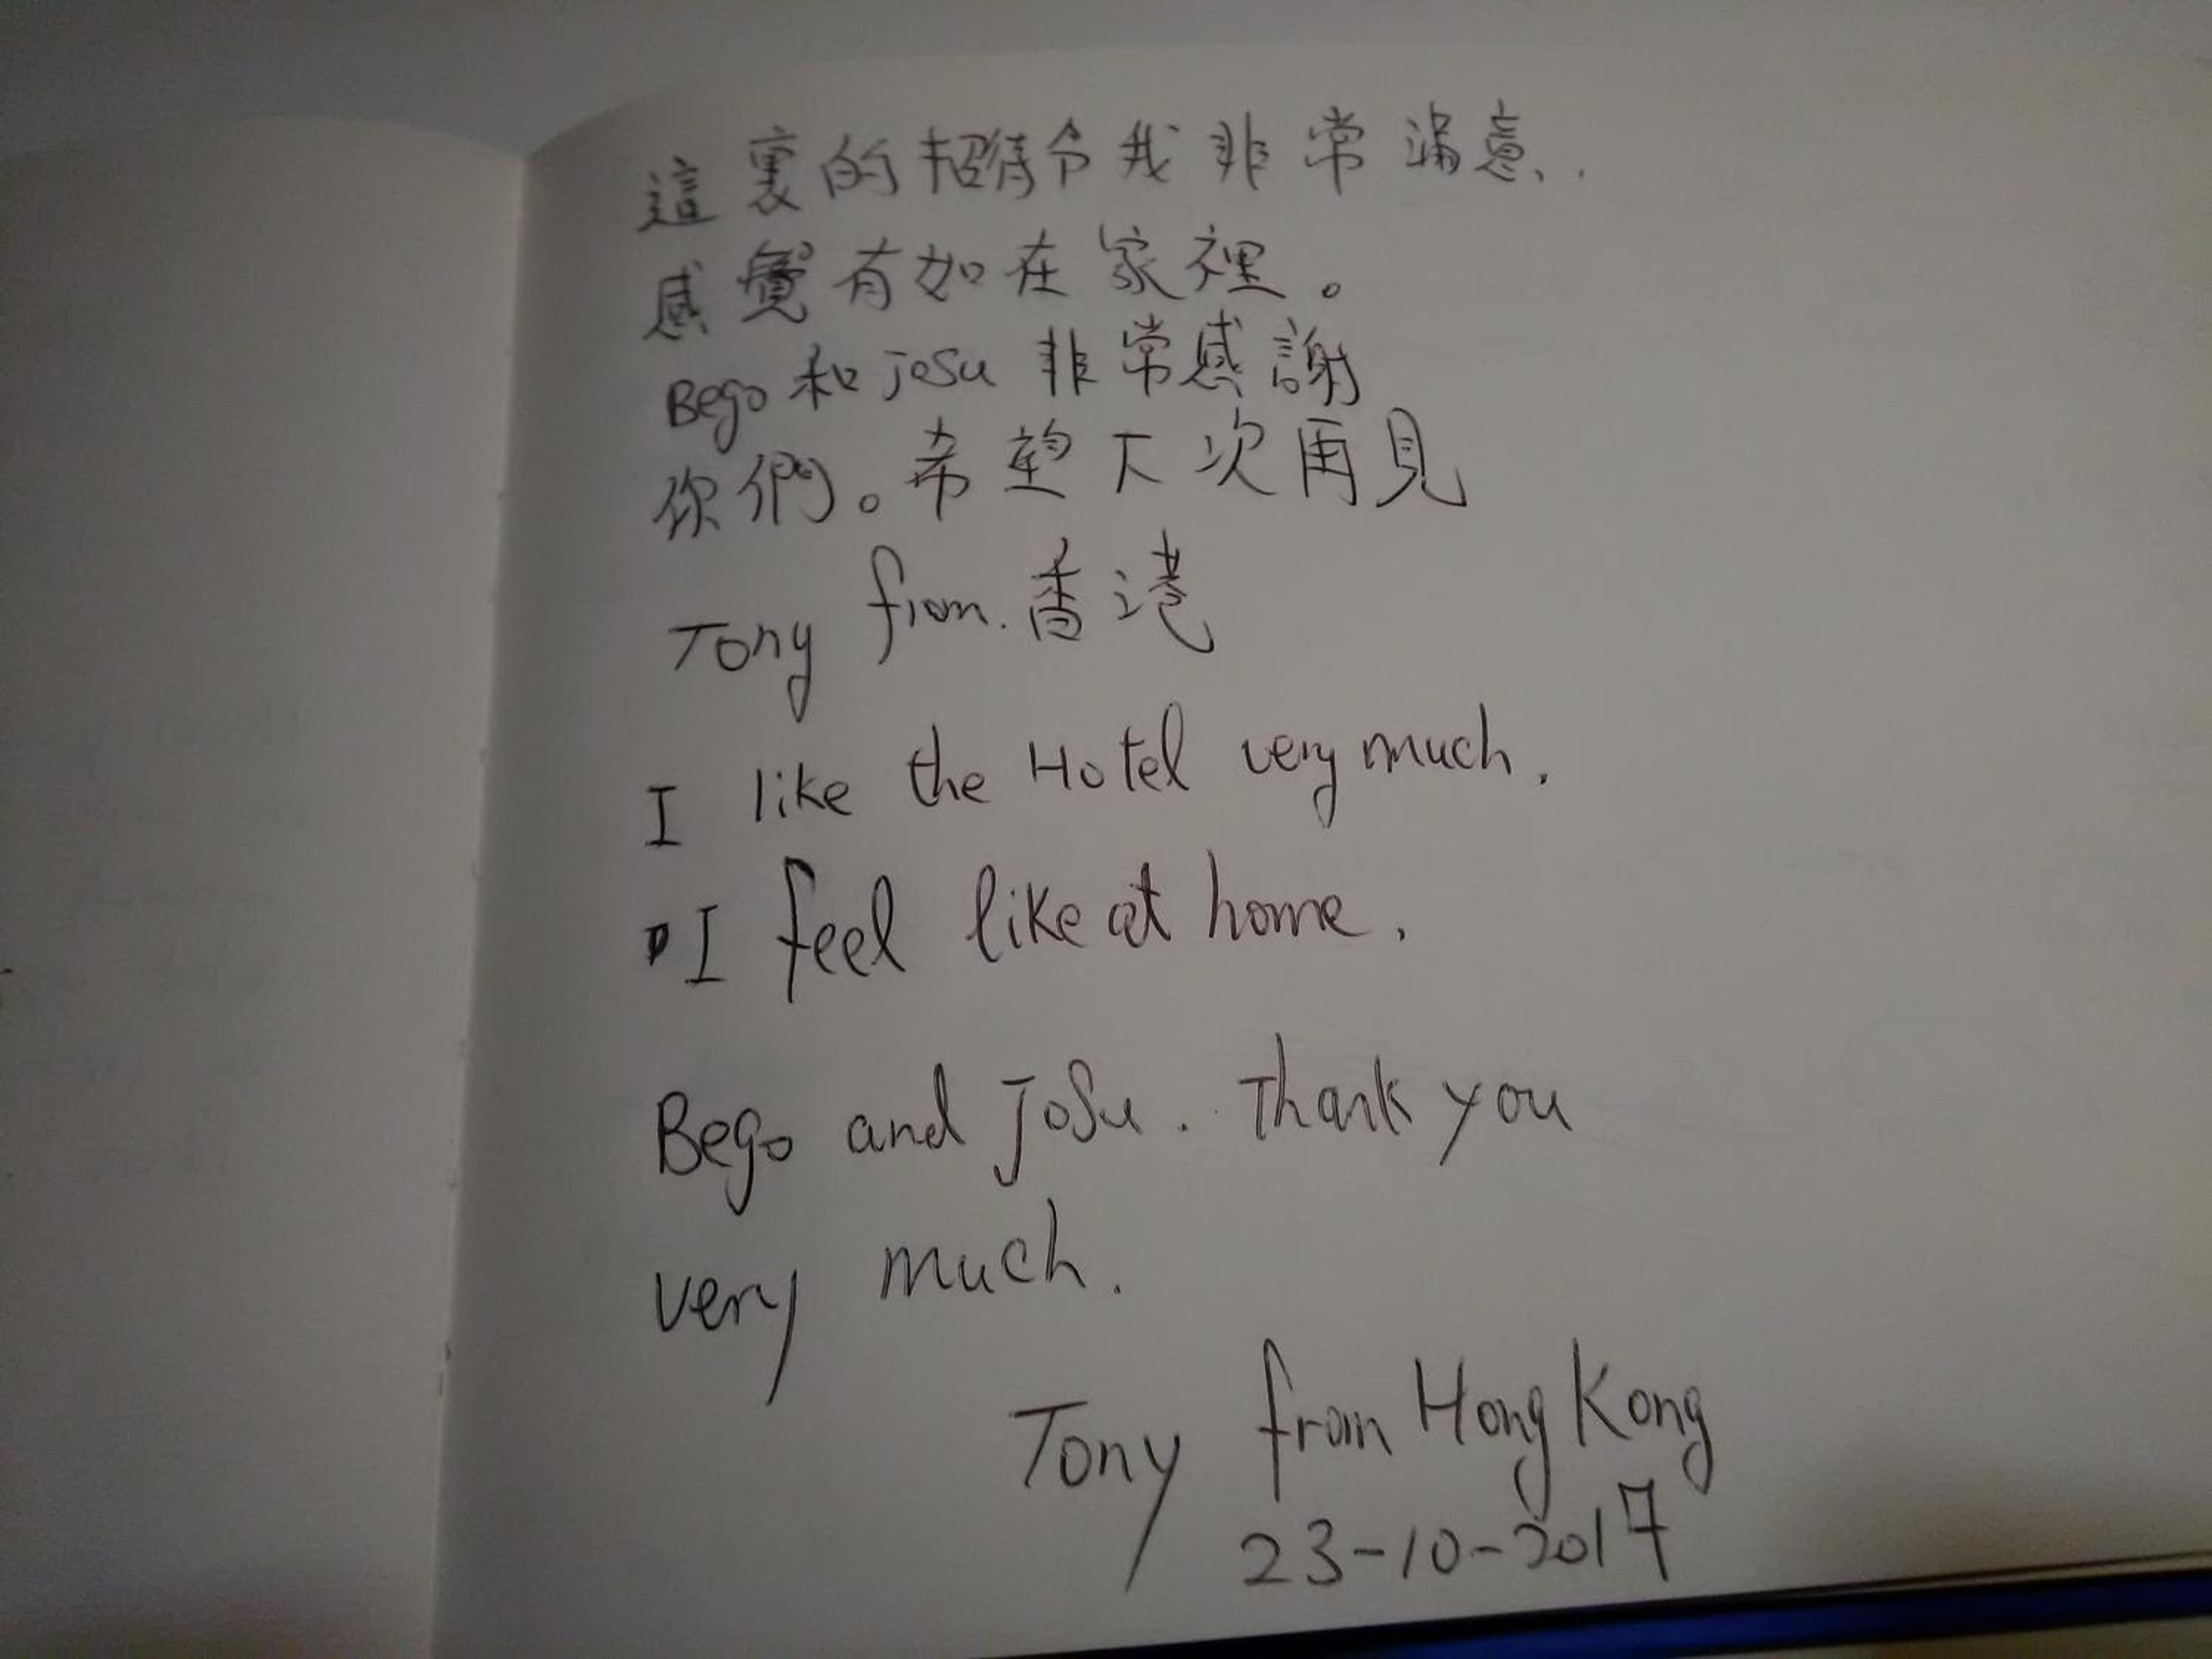 這裏的招待令我非常滿意..
感覺有如在家裡。
Bego 和 josu 非常感謝
你們。希望下次再見
Tony from. 香港
I like the Hotel very much.
I feel like at home.
Bego and Josu. Thank you
very much.
Tony from Hong Kong
23-10-2017